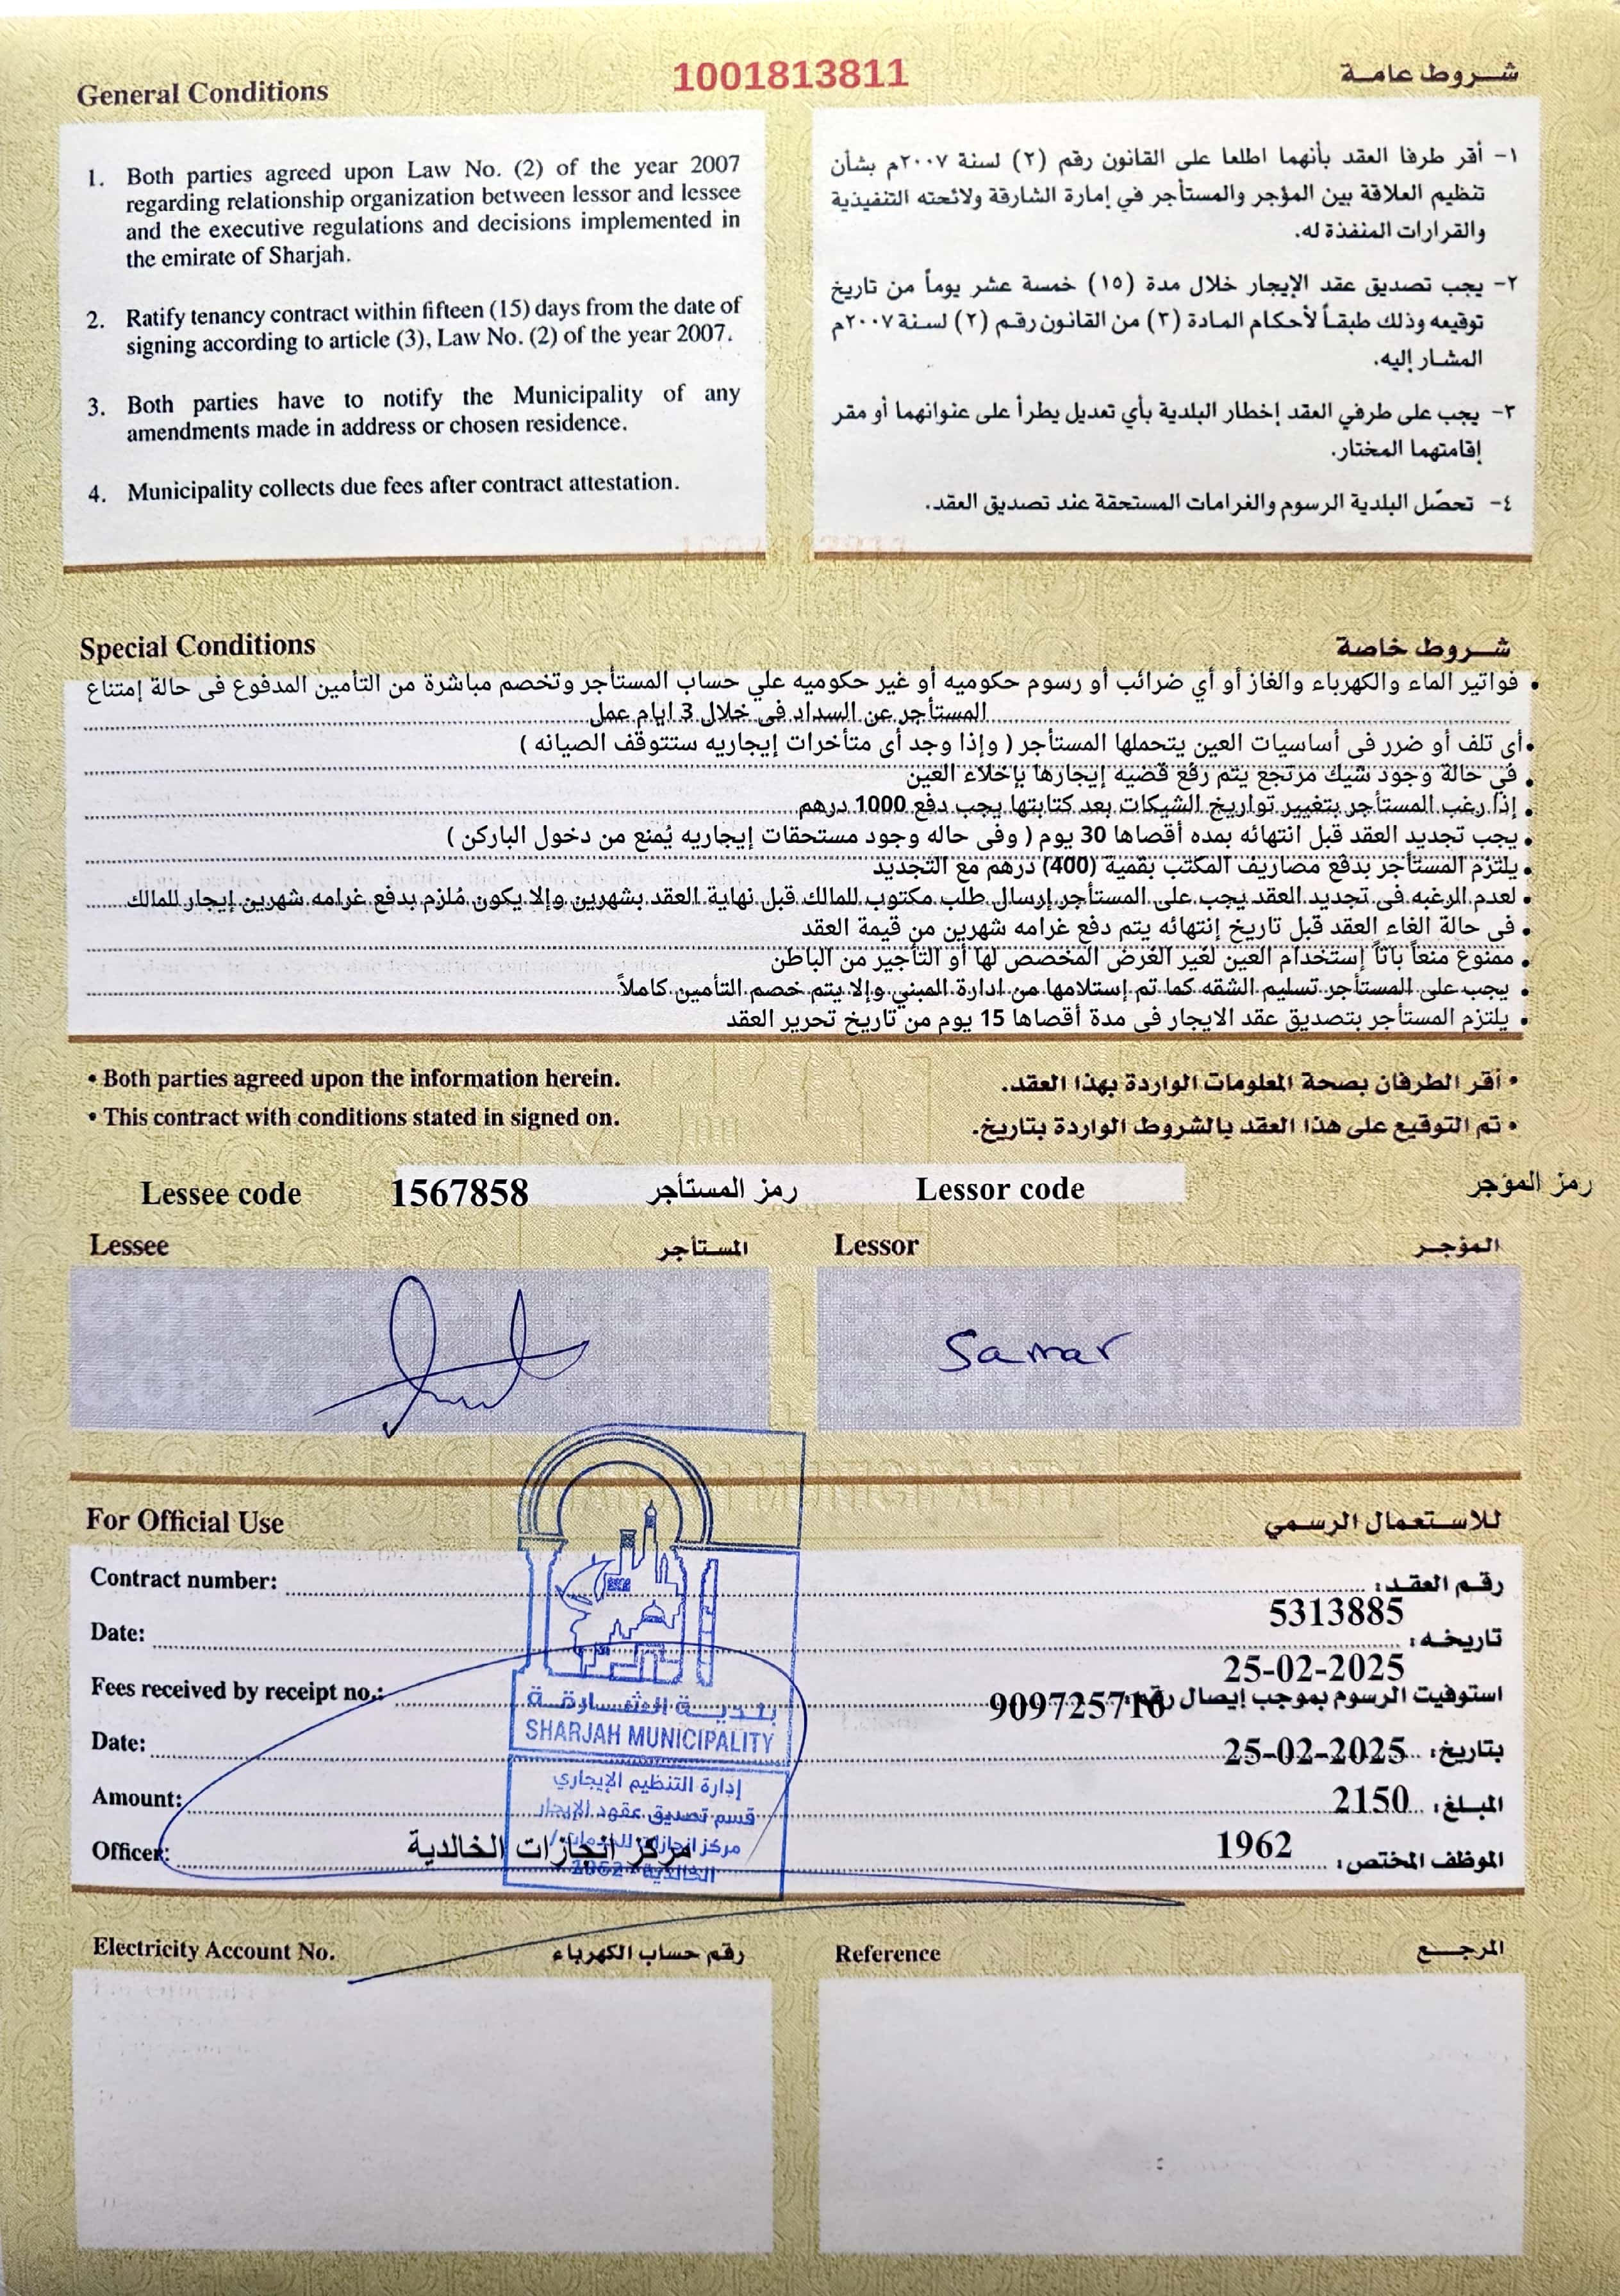 1001813811
General Conditions
شروط عامة
1. Both parties agreed upon Law No. (2) of the year 2007
regarding relationship organization between lessor and lessee
and the executive regulations and decisions implemented in
the emirate of Sharjah.
2. Ratify tenancy contract within fifteen (15) days from the date of
signing according to article (3), Law No. (2) of the year 2007.
3. Both parties have to notify the Municipality of any
amendments made in address or chosen residence.
4. Municipality collects due fees after contract attestation.
١- أقر طرفا العقد بأنهما اطلعا على القانون رقم (٢) لسنة ٢٠٠٧م بشأن
تنظيم العلاقة بين المؤجر والمستأجر في إمارة الشارقة ولائحته التنفيذية
والقرارات المنفذة له.
٢- يجب تصديق عقد الإيجار خلال مدة (١٥) خمسة عشر يوماً من تاريخ
توقيعه وذلك طبقاً لأحكام المادة (٣) من القانون رقم (٢) لسنة ٢٠٠٧م
المشار إليه.
٣- يجب على طرفي العقد إخطار البلدية بأي تعديل يطرأ على عنوانهما أو مقر
إقامتهما المختار.
٤- تحصّل البلدية الرسوم والغرامات المستحقة عند تصديق العقد.
Special Conditions
شروط خاصة
• فواتير الماء والكهرباء والغاز أو أي ضرائب أو رسوم حكوميه أو غير حكوميه علي حساب المستأجر وتخصم مباشرة من التأمين المدفوع فى حالة إمتناع
المستأجر عن السداد فى خلال 3 ايام عمل
• أى تلف أو ضرر فى أساسيات العين يتحملها المستأجر ( وإذا وجد أى متأخرات إيجاريه ستتوقف الصيانه )
• في حالة وجود شيك مرتجع يتم رفع قضيه إيجارها بإخلاء العين
• إذا رغب المستأجر بتغيير تواريخ الشيكات بعد كتابتها يجب دفع 1000 درهم
• يجب تجديد العقد قبل انتهائه بمده أقصاها 30 يوم ( وفى حاله وجود مستحقات إيجاريه يُمنع من دخول الباركن )
• يلتزم المستأجر بدفع مصاريف المكتب بقمية (400) درهم مع التجديد
• لعدم الرغبه فى تجديد العقد يجب على المستأجر إرسال طلب مكتوب للمالك قبل نهاية العقد بشهرين وإلا يكون مُلزم بدفع غرامه شهرين إيجار للمالك
• فى حالة الغاء العقد قبل تاريخ إنتهائه يتم دفع غرامه شهرين من قيمة العقد
• ممنوع منعاً باتاً إستخدام العين لغير الغرض المخصص لها أو التأجير من الباطن
• يجب على المستأجر تسليم الشقه كما تم إستلامها من ادارة المبني وإلا يتم خصم التأمين كاملاً
• يلتزم المستأجر بتصديق عقد الايجار فى مدة أقصاها 15 يوم من تاريخ تحرير العقد
• Both parties agreed upon the information herein.
• أقر الطرفان بصحة المعلومات الواردة بهذا العقد.
• This contract with conditions stated in signed on.
• تم التوقيع على هذا العقد بالشروط الواردة بتاريخ.
Lessee code 1567858 رمز المستأجر
Lessor code رمز المؤجر
Lessee المستأجر
Lessor المؤجر
Samar
For Official Use
للاستعمال الرسمي
Contract number: رقم العقد:
5313885
Date: تاريخه:
25-02-2025
Fees received by receipt no.: 909725716 استوفيت الرسوم بموجب إيصال رقم:
Date: 25-02-2025 بتاريخ:
Amount: 2150 المبلغ:
Officer: مركز انجازات الخالدية 1962 الموظف المختص:
بلدية الشارقة
SHARJAH MUNICIPALITY
إدارة التنظيم الإيجاري
قسم تصديق عقود الإيجار
مركز انجازات للخدمات /
الخالدية 1962
Electricity Account No. رقم حساب الكهرباء
Reference المرجع